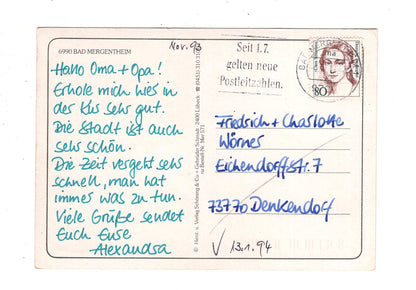 6990 BAD MERGENTHEIM
Nov. 93
Hallo Oma + Opa!
Erhole mich hier in
der Klv sehr gut.
Die Stadt ist auch
sehr schön.
Die Zeit vergeht sehr
schnell, man hat
immer was zu tun.
Viele Grüße sendet
Euch Eure
Alexandra
Seit 1.7.
gelten neue
Postleitzahlen.
80
Friedrich + Charlotte
Wörner
Eichendorffstr. 7
73770 Denkendorf
V 13.1.94